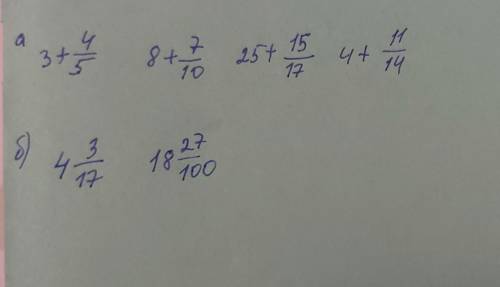 а 3+4/5 8+7/10 25+15/17 4+11/14
б) 4 3/17 18 27/100